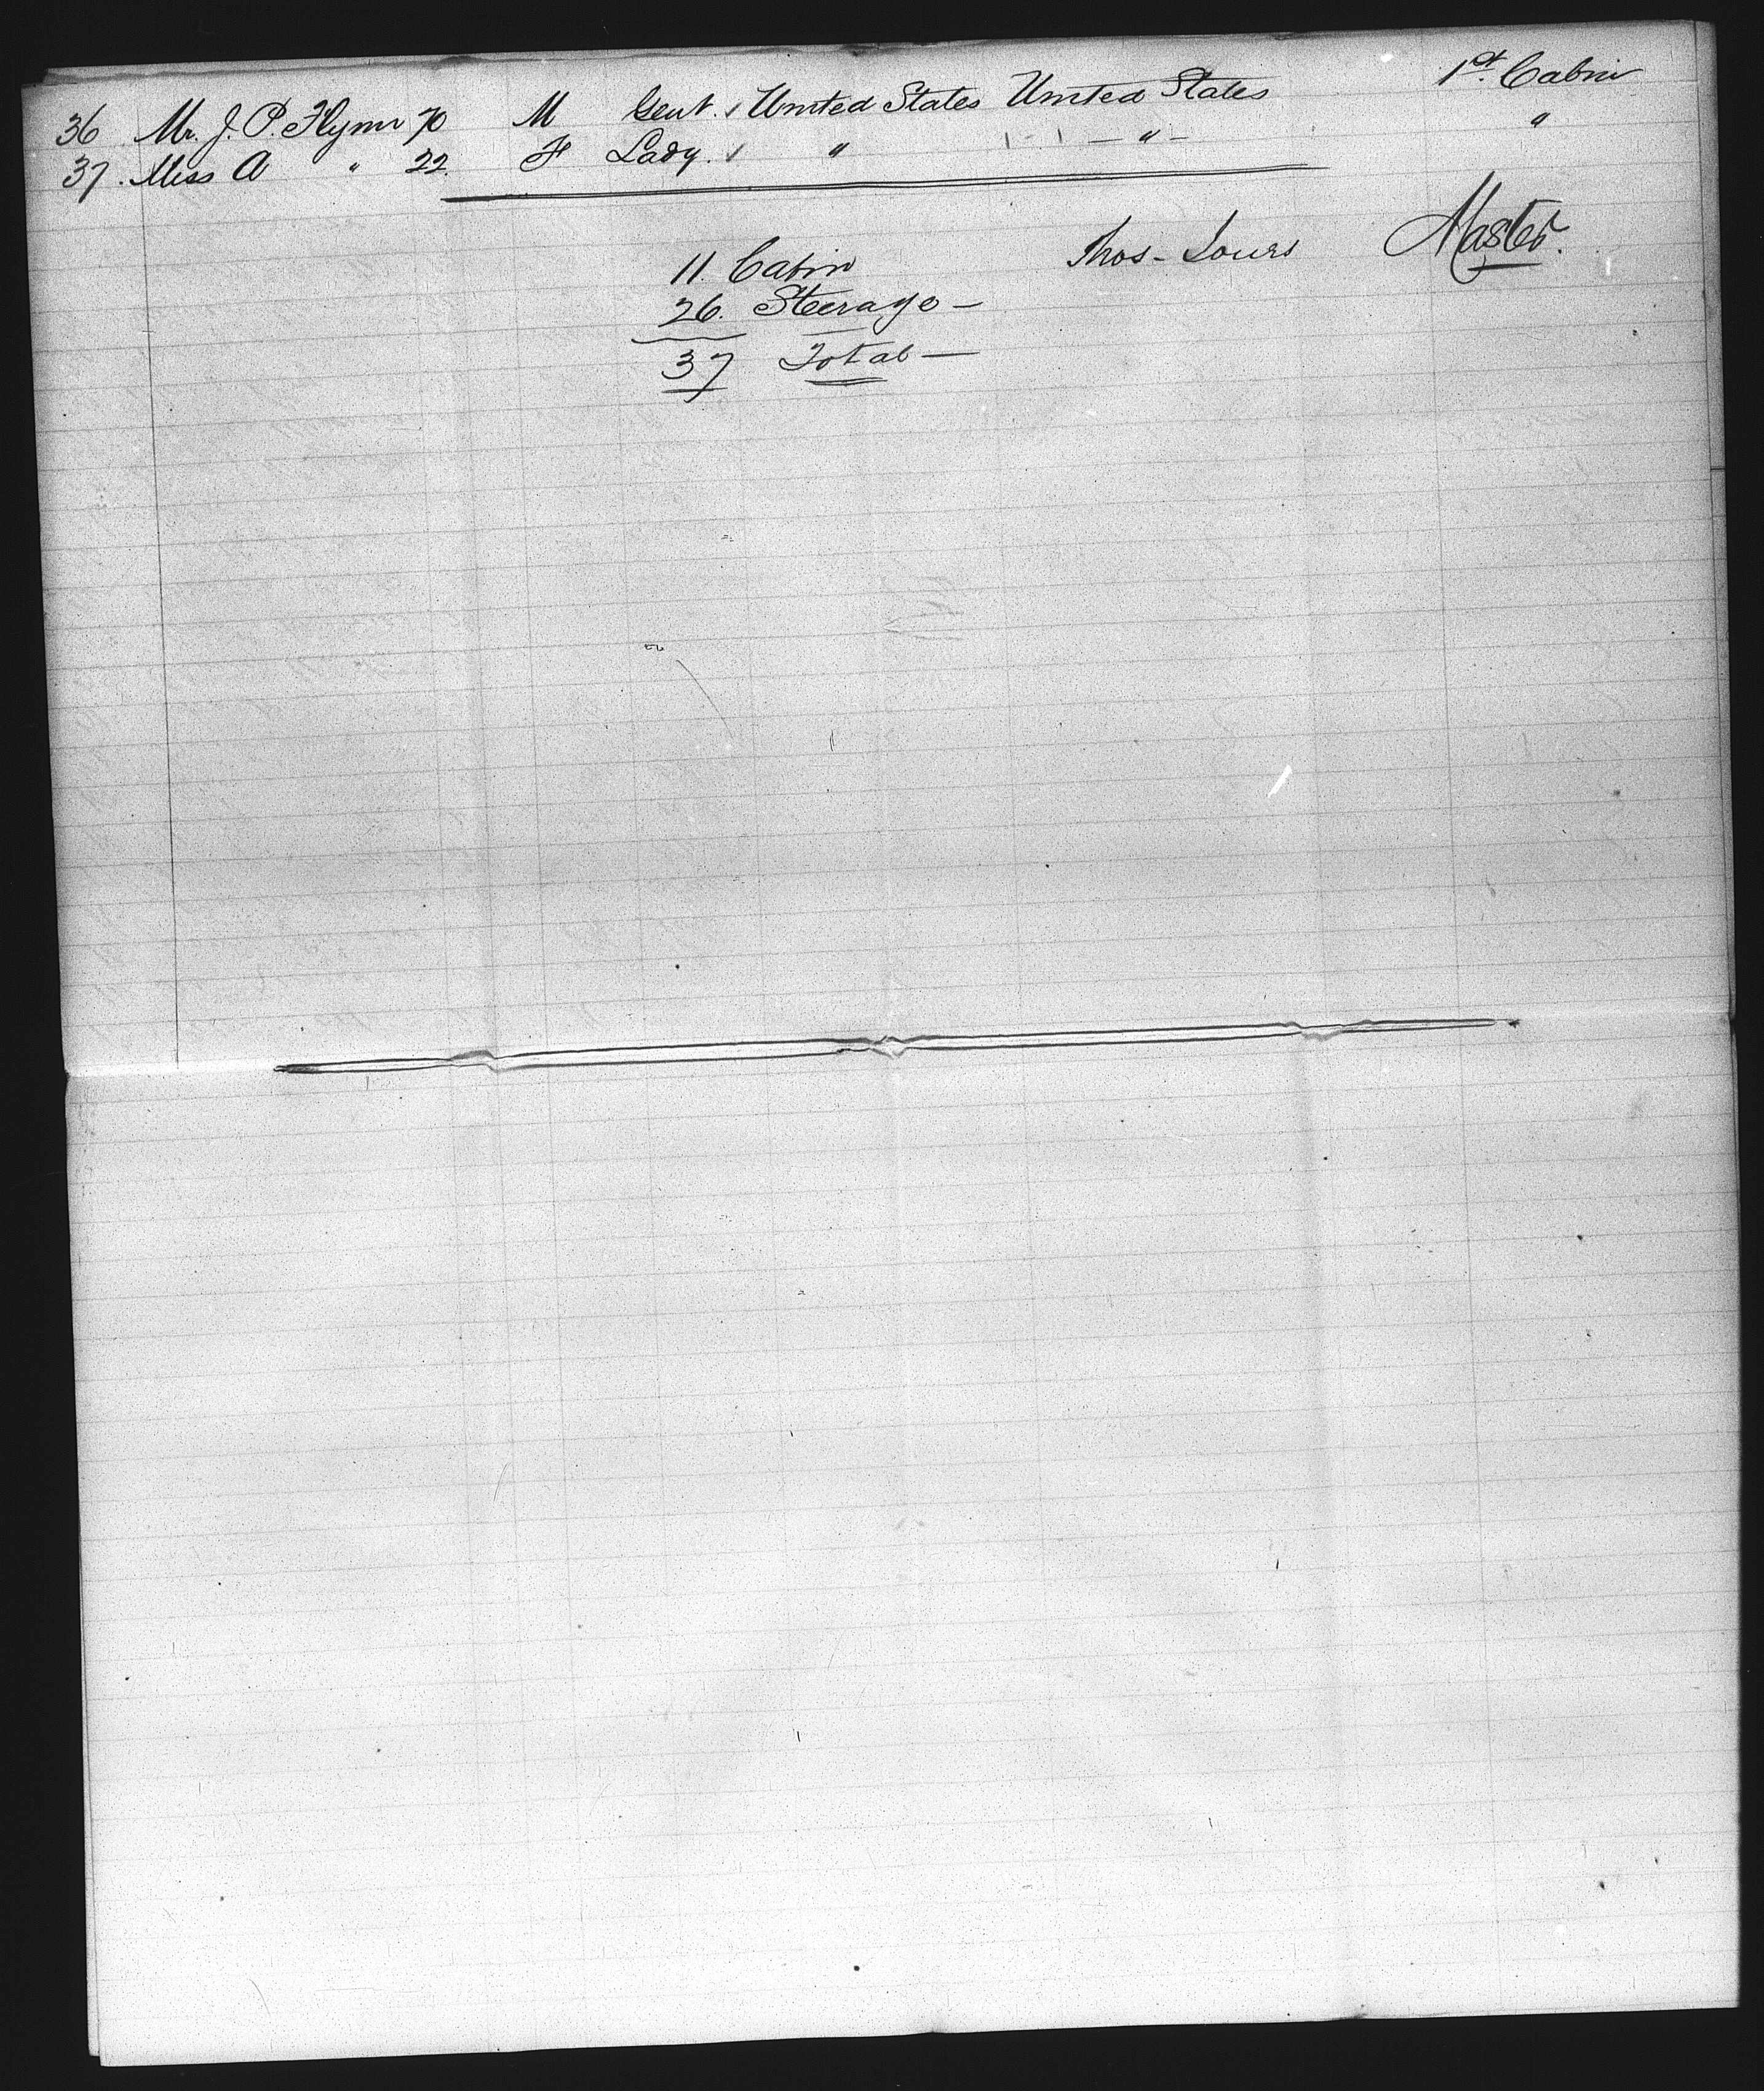 36 Mr. J. P. Flynn 70 M Gent. ✓ United States United States 1st. Cabin
37. Miss A " 22. F Lady. ✓ " — " — "
11. Cabin Thos - Master.
26. Steerage —
37 Total —